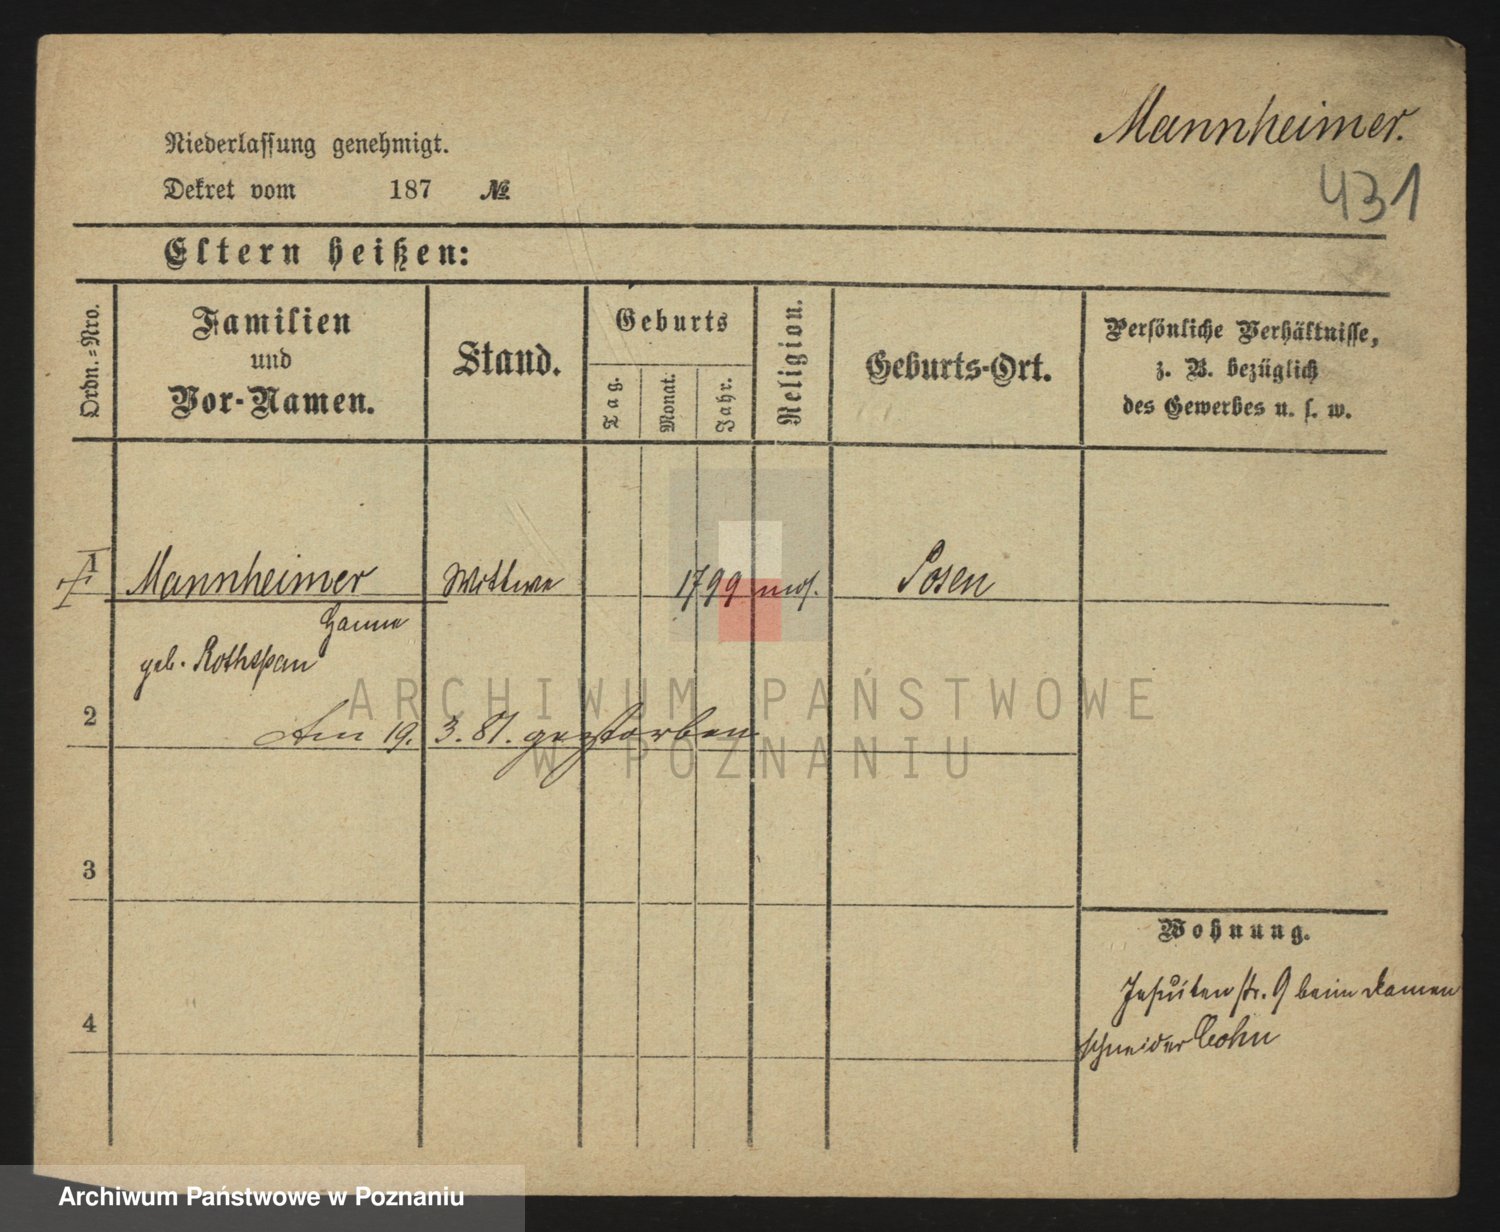 Mannheimer.
431
Niederlassung genehmigt.
Dekret vom 187 №
Eltern heißen:
Ordn.-Nro.
Familien und Vor-Namen.
Stand.
Geburts
Tag.
Monat.
Jahr.
Religion.
Geburts-Ort.
Persönliche Verhältnisse,
z. B. bezüglich
des Gewerbes u. s. w.
1 Mannheimer Wittwe 1799 mos. Posen
Hanne
geb. Rothspan
2
Am 19. 3. 81. gestorben
3
Wohnung.
Jesuitenstr. 9 beim Damen
schneider Cohn
4
ARCHIWUM PAŃSTWOWE
W POZNANIU
Archiwum Państwowe w Poznaniu